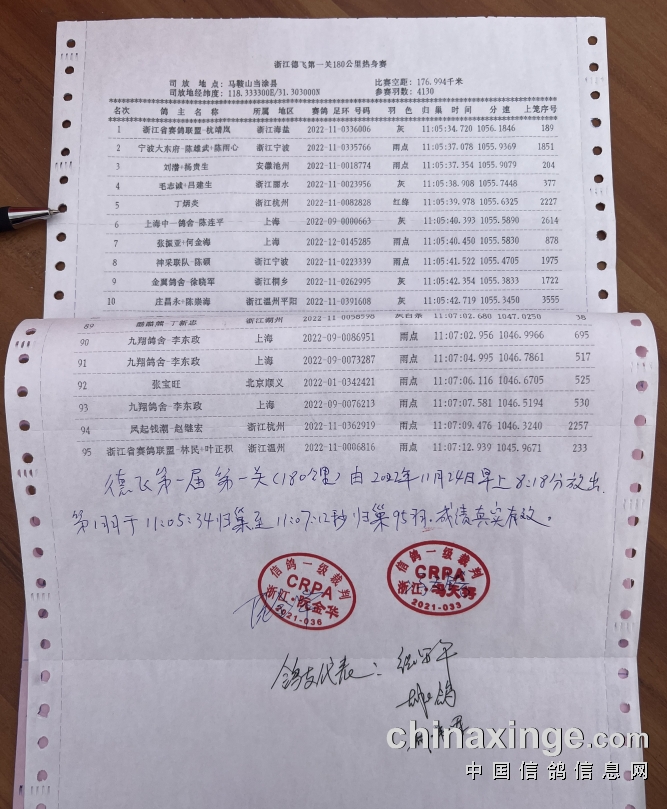 浙江德飞第一关180公里热身赛
司 放 地 点: 马鞍山当涂县 比赛空距: 176.994千米
司放地经纬度: 118.333300E/31.303000N 参赛羽数: 4130
名次 鸽 主 名 称 所 属 地 区 赛鸽 足环 号码 羽 色 归 巢 时 间 分 速 上笼序号
1 浙江省赛鸽联盟-杭靖岚 浙江海盐 2022-11-0336006 灰 11:05:34.720 1056.1846 189
2 宁波大东府-陈雄武+陈雨心 浙江宁波 2022-11-0335766 雨点 11:05:37.078 1055.9369 1851
3 刘潜+杨贵生 安徽池州 2022-11-0018774 雨点 11:05:37.354 1055.9079 204
4 毛志诚+吕建生 浙江丽水 2022-11-0023956 灰 11:05:38.908 1055.7448 377
5 丁炳炎 浙江杭州 2022-11-0082828 红绛 11:05:39.978 1055.6325 2227
6 上海中一鸽舍-陈连平 上海 2022-09-0000663 灰 11:05:40.393 1055.5890 2614
7 张振亚+何金海 上海 2022-12-0145285 雨点 11:05:40.450 1055.5830 878
8 神采联队-陈颐 浙江宁波 2022-11-0223339 雨点 11:05:41.522 1055.4705 1975
9 金翼鸽舍-徐晓军 浙江桐乡 2022-11-0262995 灰 11:05:42.354 1055.3833 1722
10 庄昌永+陈崇海 浙江温州平阳 2022-11-0391608 灰 11:05:42.719 1055.3450 3555
89 丁新忠 浙江湖州 2022-11-0058598 灰白条 11:07:02.680 1047.0250 38
90 九翔鸽舍-李东政 上海 2022-09-0086951 雨点 11:07:02.956 1046.9966 695
91 九翔鸽舍-李东政 上海 2022-09-0073287 雨点 11:07:04.995 1046.7861 517
92 张宝旺 北京顺义 2022-01-0342421 雨点 11:07:06.116 1046.6705 525
93 九翔鸽舍-李东政 上海 2022-09-0076213 雨点 11:07:07.581 1046.5194 530
94 凤起钱潮-赵继宏 浙江杭州 2022-11-0362919 雨点 11:07:09.476 1046.3240 2257
95 浙江省赛鸽联盟-林民+叶正积 浙江温州 2022-11-0006816 雨点 11:07:12.939 1045.9671 233
德飞第一届第一关(180公里)由2022年11月24日早上8:18分放出.
第1羽于11:05:34归巢至11:07:12秒归巢95羽.成绩真实有效。
信鸽一级裁判
CRPA
浙江·阮金华
2021-036
信鸽一级裁判
CRPA
浙江·
2021-033
鸽友代表:
chinaxinge.com
中国信鸽信息网